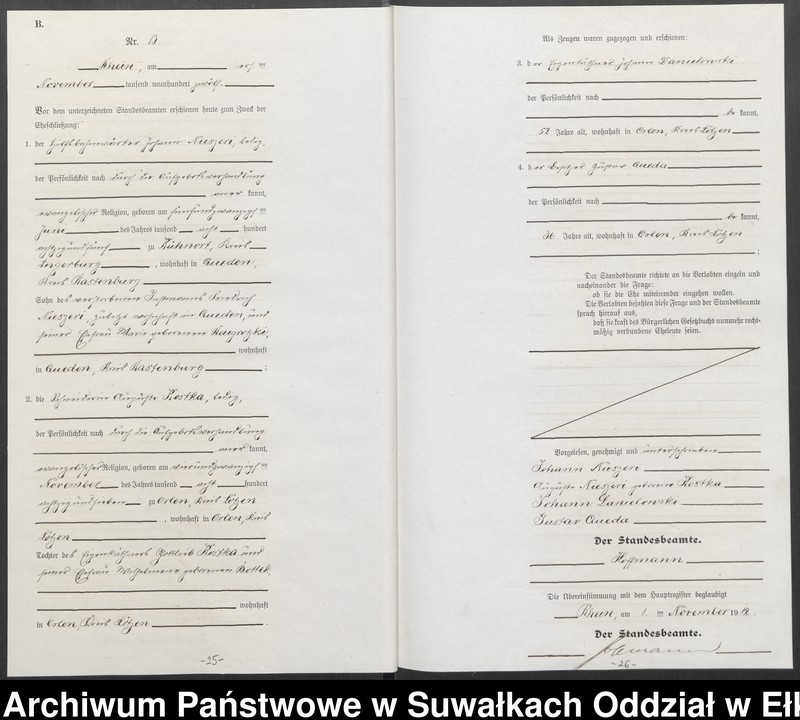 B.
Nr. 13.
Rhein, am ersten
November tausend neunhundert zwölf.
Vor dem unterzeichneten Standesbeamten erschienen heute zum Zweck der
Eheschließung:
1. der Hülfsbahnwärter Johann Nuszeri, ledig,
der Persönlichkeit nach durch die Aufgebotsverhandlung
anerkannt,
evangelischer Religion, geboren am fünfundzwanzigsten
Juni des Jahres tausend acht hundert
achtzigundfünf zu Kühnort, Kreis
Angerburg, wohnhaft in Queden,
Kreis Rastenburg
Sohn des verstorbenen Instmanns Friedrich
Nuszeri, zuletzt wohnhaft in Queden, und
seiner Ehefrau Marie geborenen
wohnhaft
in Queden, Kreis Rastenburg;
2. die Schneiderin Auguste Kostka, ledig,
der Persönlichkeit nach durch die Aufgebotsverhandlung
anerkannt,
evangelischer Religion, geboren am vierundzwanzigsten
November des Jahres tausend acht hundert
achtzigundsieben zu Orlen, Kreis Lötzen
, wohnhaft in Orlen, Kreis
Lötzen
Tochter des Eigenkäthners Gottlieb Kostka und
seiner Ehefrau Wilhelmine geborenen Bottek,
wohnhaft
in Orlen, Kreis Lötzen.
-25-
Als Zeugen waren zugezogen und erschienen:
3. der Eigenkäthner Johann Danielowski
der Persönlichkeit nach
bekannt,
52 Jahre alt, wohnhaft in Orlen, Kreis Lötzen
4. der Besitzer Gustav Queda
der Persönlichkeit nach
bekannt,
36 Jahre alt, wohnhaft in Orlen, Kreis Lötzen
;
Der Standesbeamte richtete an die Verlobten einzeln und
nacheinander die Frage:
ob sie die Ehe miteinander eingehen wollen.
Die Verlobten bejahten diese Frage und der Standesbeamte
sprach hierauf aus,
daß sie kraft des Bürgerlichen Gesetzbuchs nunmehr recht-
mäßig verbundene Eheleute seien.
Vorgelesen, genehmigt und unterschrieben
Johann Nuszeri
Auguste Nuszeri geborene Kostka
Johann Danielowski
Gustav Queda
Der Standesbeamte.
Hoffmann
Die Übereinstimmung mit dem Hauptregister beglaubigt
Rhein, am 1. ten November 1912.
Der Standesbeamte.
Hoffmann
-26-
Archiwum Państwowe w Suwałkach Oddział w Ełk